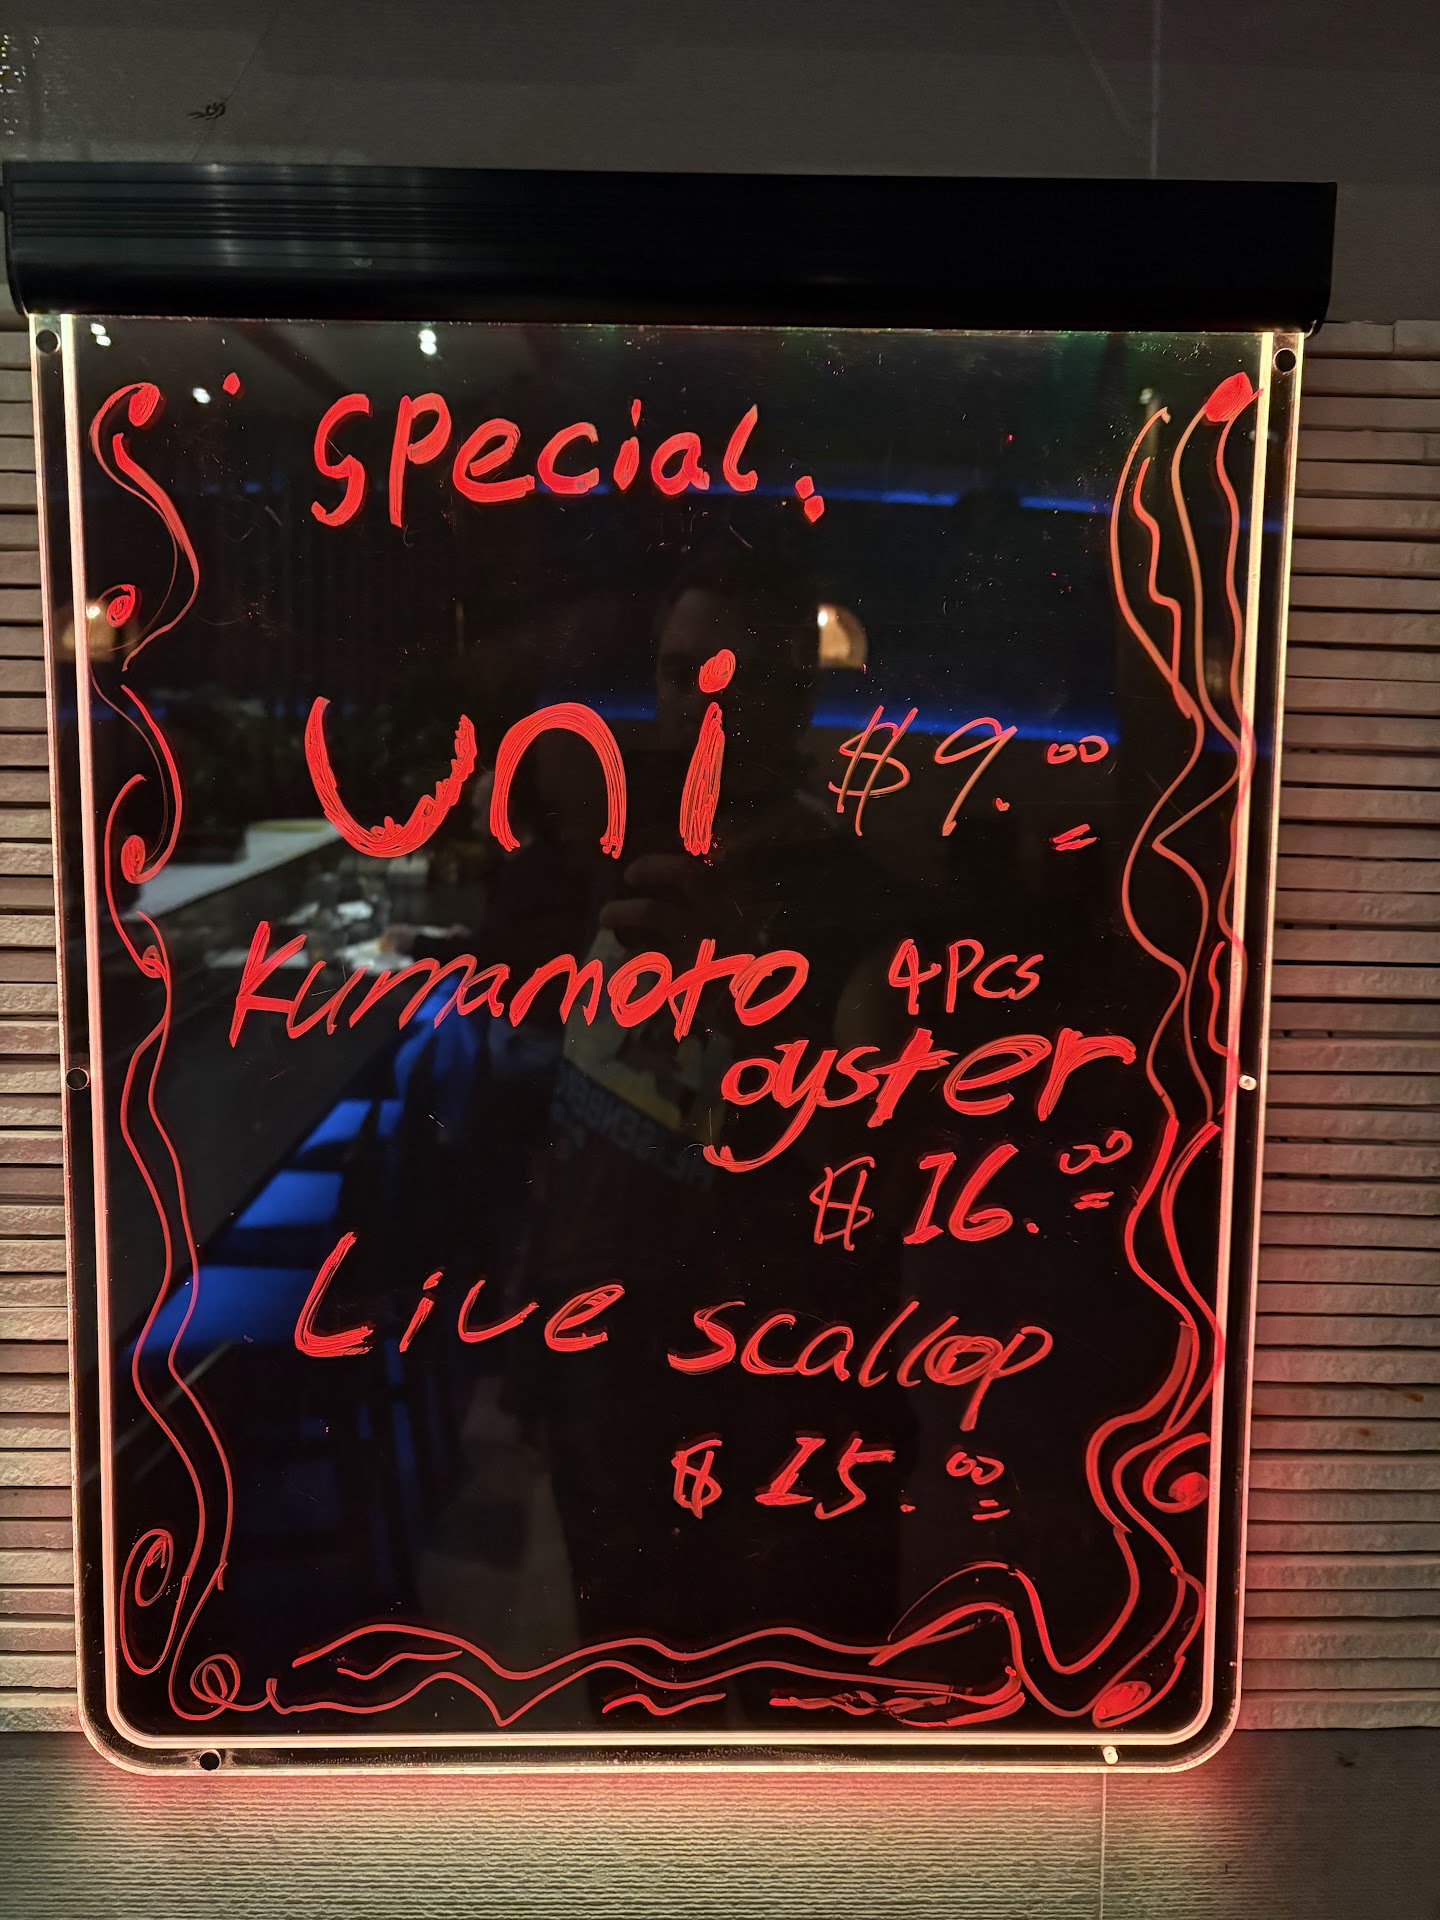 Special:
uni $9.00
Kumamoto 4Pcs
oyster
$16.00
Live scallop
$15.00